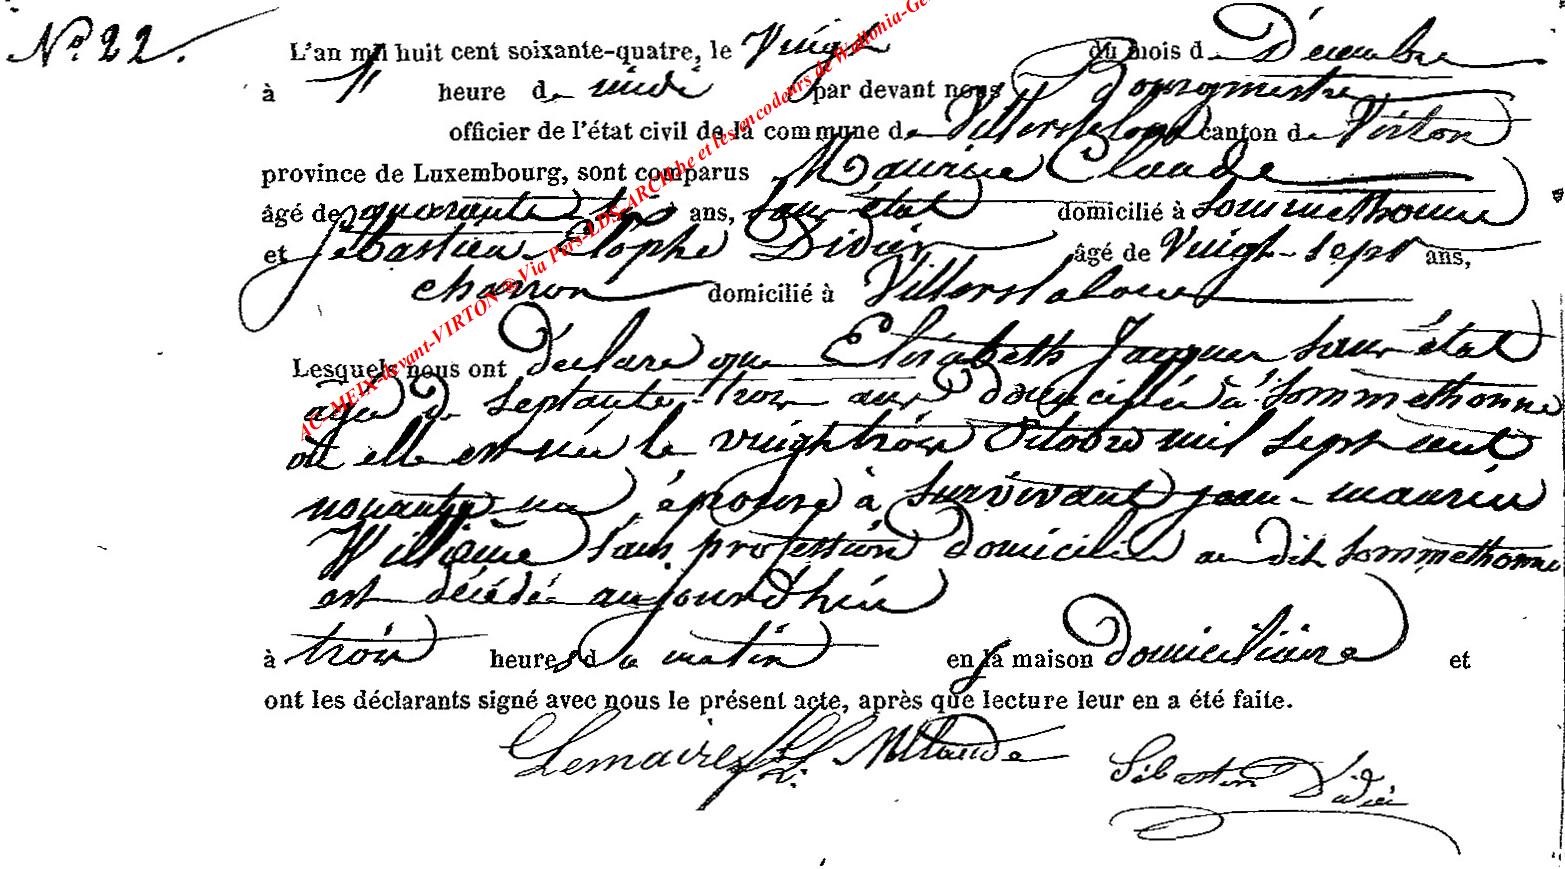 N° 22.
L'an mil huit cent soixante-quatre, le Vingt du mois de Décembre
à heure de midi par devant nous Bourgmestre
officier de l'état civil de la commune de Villers la loue canton de Virton
province de Luxembourg, sont comparus Maurice Claude
âgé de quarante ans, sans état domicilié à Sommethonne
et Sébastien Didier âgé de Vingt-sept ans,
charron domicilié à Villers la loue
Lesquels nous ont déclaré que Elisabeth Jacques sans état
agée de septante-trois ans domiciliée à Sommethonne
où elle est née le vingt trois Octobre mil sept cent
nonante un épouse à survivant jean-maurice
Williaume sans profession domicilié au dit Sommethonne
est décédée aujourd'hui
à trois heures du matin en la maison domiciliaire et
ont les déclarants signé avec nous le présent acte, après que lecture leur en a été faite.
Lemaire MClaude Sébastien Didier
AC MEIX-devant-VIRTON ® Via Pers-LDS-ARCH.be et les encodeurs de Wallonia-Ge